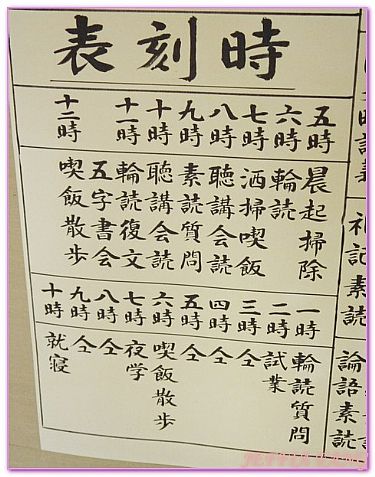 時刻表
五時 晨起掃除
六時 輪読
七時 洒掃喫飯
八時 聽講会読
九時 素読質問
十時 聽講会読
十一時 輪読復文
五字書会
十二時 喫飯散歩
一時 輪読質問
二時 試業
三時 仝
四時 仝
五時 仝
六時 喫飯散歩
七時 夜学
八時 仝
九時 仝
十時 就寝
礼記素読
論語素読